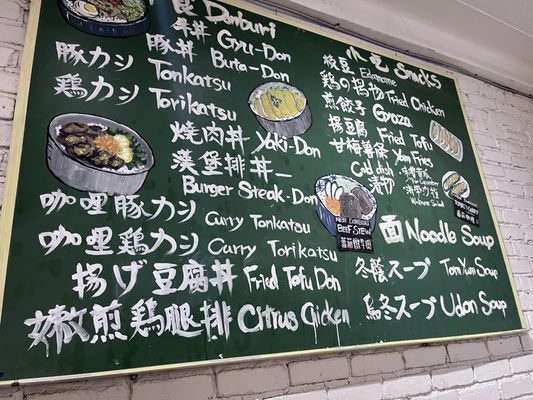 Donburi
牛丼 Gyu-Don
豚カツ 豚丼 Buta-Don
Tonkatsu
鶏カツ Torikatsu
焼肉丼 Yaki-Don
漢堡排丼
Burger Steak-Don
咖哩豚カツ Curry Tonkatsu
咖哩鶏カツ Curry Torikatsu
揚げ豆腐丼 Fried Tofu Don
嫩煎鶏腿排 Citrus Chicken
小吃 Snacks
枝豆 Edamame
鶏の揚物 Fried Chicken
煎餃子 Gyoza
揚豆腐 Fried Tofu
甘梅薯條 Yam Fries
Cold dish
漬物
BEEF STEW
面 Noodle Soup
冬蔭スープ Tom Yum Soup
烏冬スープ Udon Soup